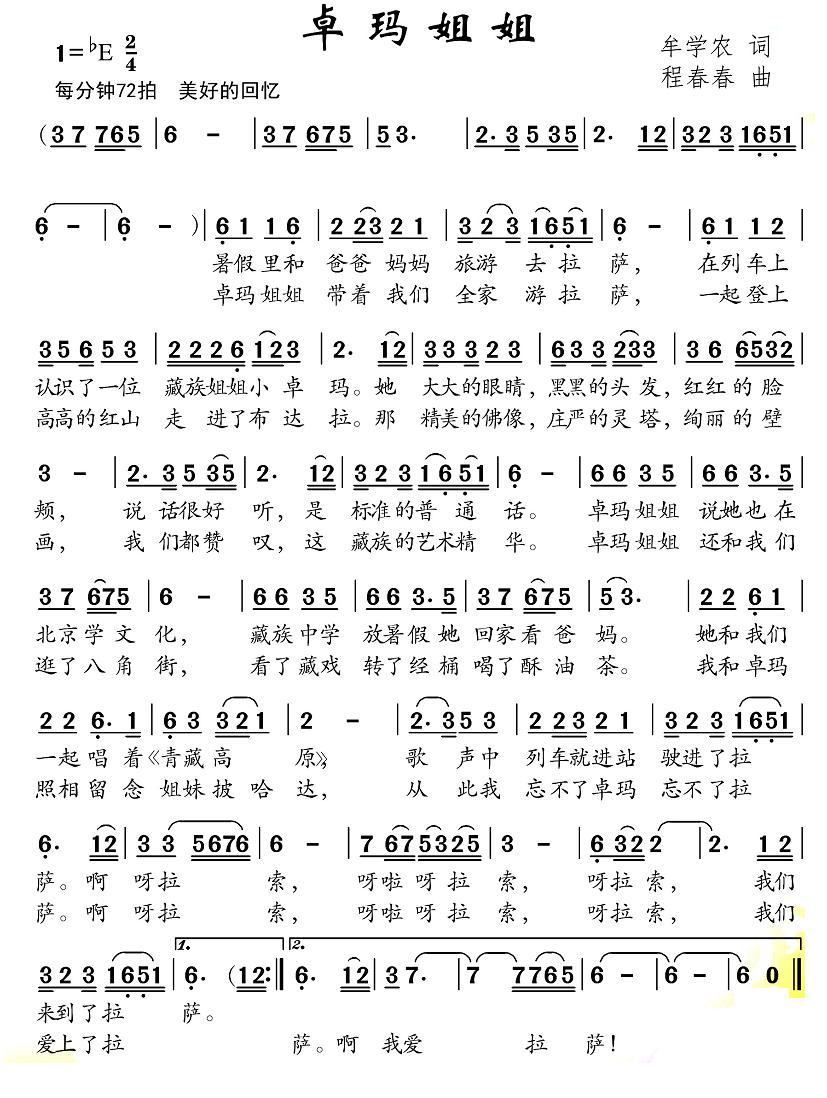 卓玛姐姐
1=♭E 2/4
牟学农 词
每分钟72拍 美好的回忆
程春春 曲
(3 7 765 | 6 - | 3 7 675 | 5 3. | 2. 3 5 35 | 2. 12 | 3 2 3 1651 |
6 - | 6 - ) | 6 1 1 6 | 2 23 2 1 | 3 2 3 1651 | 6 - | 6 1 1 2 |
暑假里和 爸爸 妈妈 旅游 去 拉 萨， 在列车上
卓玛姐姐 带着 我们 全家 游 拉 萨， 一起登上
3 5 6 5 3 | 2 2 2 6 1 2 3 | 2. 12 | 3 3 3 2 3 | 6 3 233 | 3 6 6532 |
认识了一位 藏族姐姐小 卓 玛。她 大大的眼睛，黑黑的头发，红红的 脸
高高的红山 走 进了布 达 拉。那 精美的佛像，庄严的灵塔，绚丽的 壁
3 - | 2. 3 5 35 | 2. 12 | 3 2 3 1 651 | 6 - | 6 6 3 5 | 6 6 3. 5 |
颊， 说 话很好 听，是 标准的普 通 话。 卓玛姐姐 说她也在
画， 我 们都赞 叹，这 藏族的艺术精 华。 卓玛姐姐 还和我们
3 7 675 | 6 - | 6 6 3 5 | 6 6 3. 5 | 3 7 675 | 5 3. | 2 2 6 1 |
北京学 文 化， 藏族中学 放暑假她 回家看 爸 妈。 她和我们
逛了八 角 街， 看了藏戏 转了经桶 喝了酥 油 茶。 我和卓玛
2 2 6. 1 | 6 3 321 | 2 - | 2. 3 5 3 | 2 23 2 1 | 3 2 3 1651 |
一起唱 着《青藏高 原》， 歌 声中 列车就进站 驶进了拉
照相留 念 姐妹披 哈 达， 从 此我 忘不了卓玛 忘不了拉
6. 12 | 3 3 5676 | 6 - | 7 67 5325 | 3 - | 6 32 2 | 2. 1 2 |
萨。啊 呀拉 索， 呀啦 呀 拉 索， 呀拉 索， 我们
萨。啊 呀拉 索， 呀啦 呀 拉 索， 呀拉 索， 我们
3 2 3 1651 | 1. 6. (12 :‖ 2. 6. 12 | 3 7. | 7 7765 | 6 - | 6 - | 6 0 ‖
来到了拉 萨。
爱上了拉 萨。啊 我爱 拉 萨！